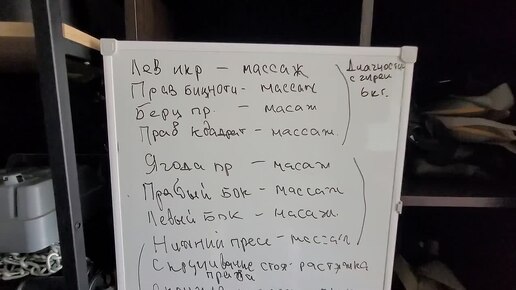 Лев икр – массаж
Прав бицноги – массаж
Берц пр. – масаж
Прав квадрат – массаж.
Ягода пр – масаж
Правый бок – массаж
Левый Бок – масаж.
Нижний пресс – массаж
Скручивание стоя – растяжка
пресса
Диагностика
с гирей
6 кг.